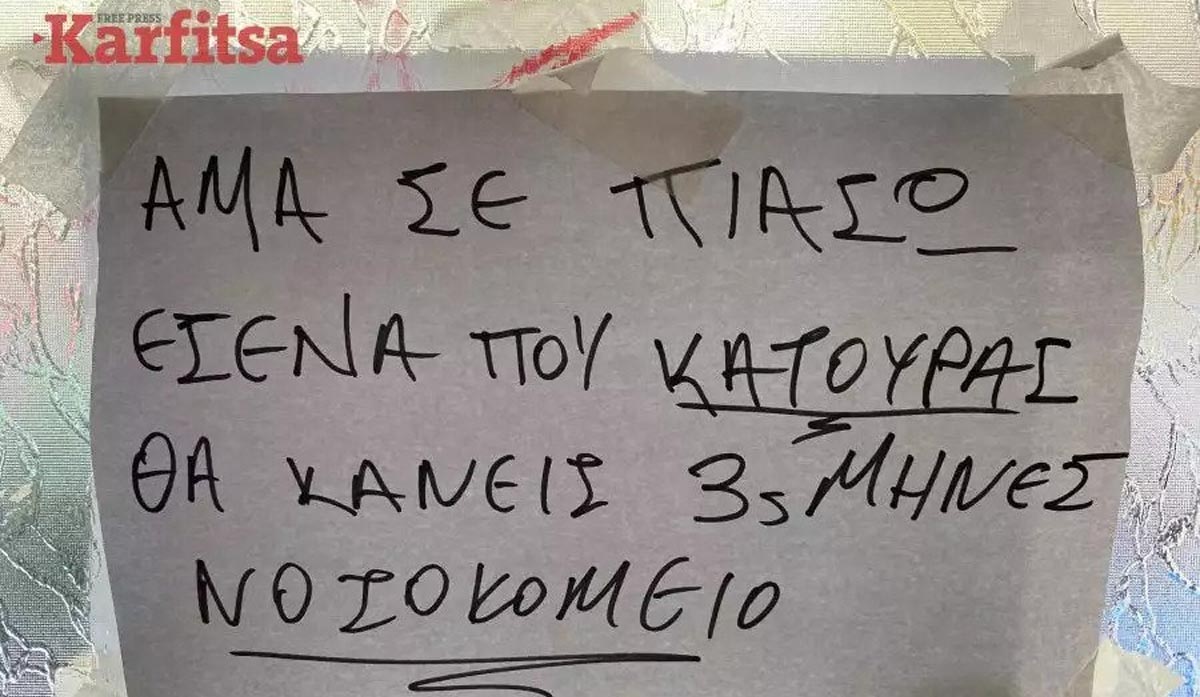 FREE PRESS
Karfitsa
ΑΜΑ ΣΕ ΠΙΑΣΩ
ΕΣΕΝΑ ΠΟΥ ΚΑΤΟΥΡΑΣ
ΘΑ ΚΑΝΕΙΣ 3ς ΜΗΝΕΣ
ΝΟΣΟΚΟΜΕΙΟ